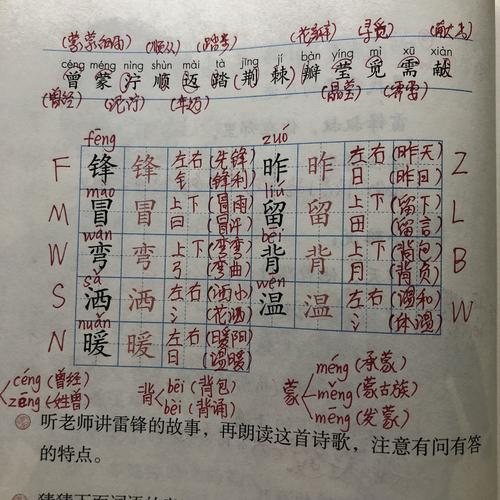 (蒙蒙细雨) (顺从) (踏步) (花瓣) (寻觅)
céng méng nìng shùn mài tà jīng jí bàn yíng mì xū xiàn
曾 蒙 泞 顺 迈 踏 荆 棘 瓣 莹 觅 需 献
(曾经) (泥泞) (年迈) (晶莹) (需要)
fēng zuó
F 锋 锋 左右 (先锋) 昨 昨 左右 (昨天) Z
钅 (锋利) 日 (昨日)
mào liú
M 冒 冒 上下 (冒雨) 留 留 上下 (留下) L
曰 (冒汗) 田 (留言)
wān bēi
W 弯 弯 上下 (弯弯) 背 背 上下 (背包) B
弓 (弯曲) 月 (背负)
sǎ wēn
S 洒 洒 左右 (洒水) 温 温 左右 (温和) W
氵 (花洒) 氵 (体温)
nuǎn
N 暖 暖 左右 (暖阳)
日 (温暖)
céng (曾经) bēi (背包) méng (承蒙)
zēng (姓曾) 背 bèi (背诵) 蒙 měng (蒙古族)
mēng (发蒙)
听老师讲雷锋的故事，再朗读这首诗歌，注意有问有答
的特点。